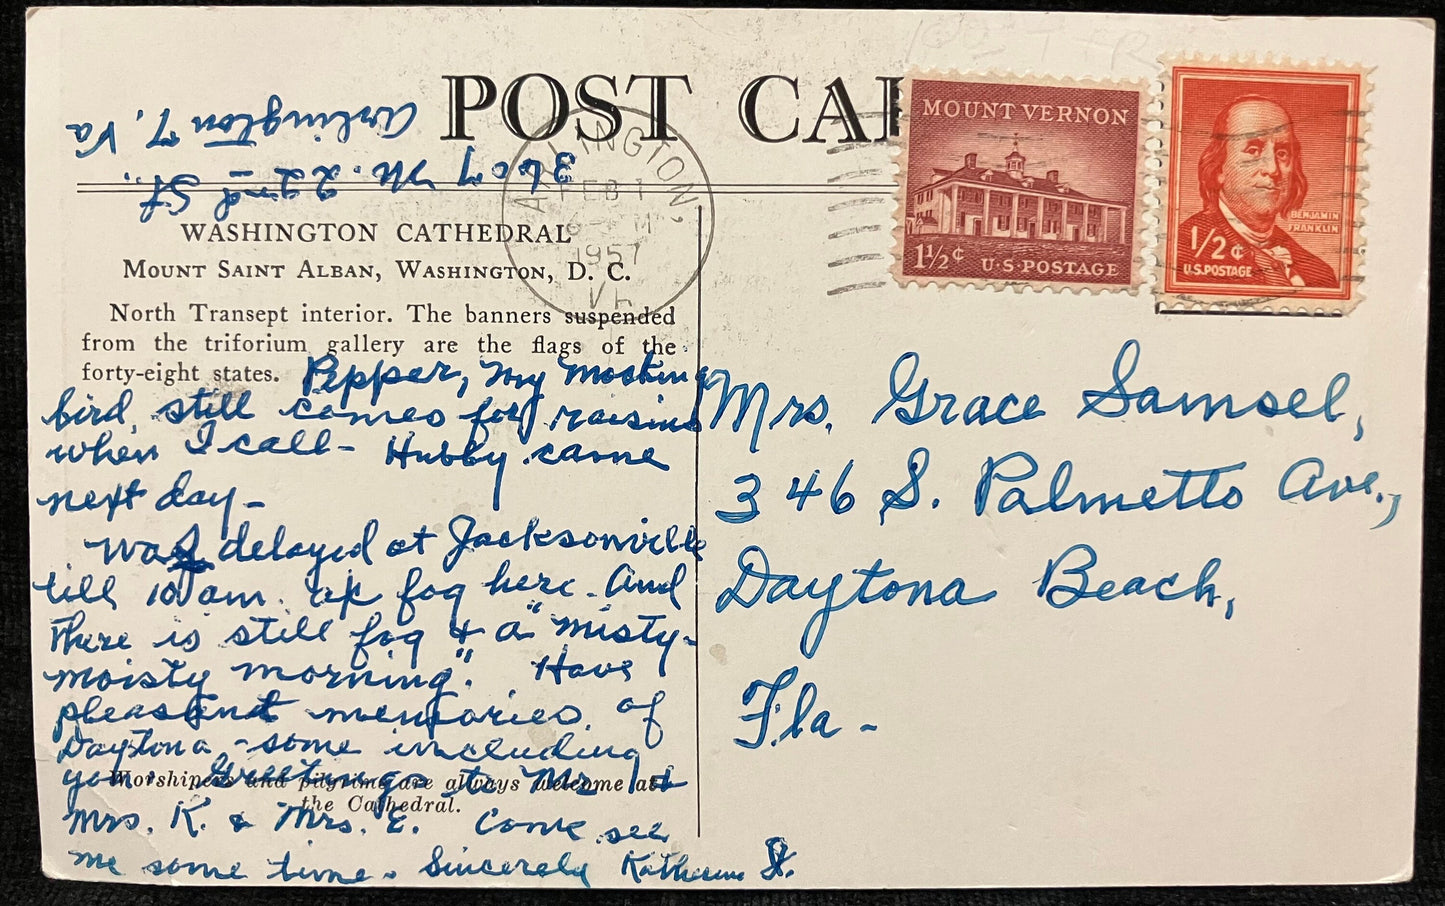 POST CAR
MOUNT VERNON
1½¢ U·S·POSTAGE
BENJAMIN
FRANKLIN
1/2¢
U.S. POSTAGE
ARLINGTON,
FEB 1
1957
VA
3607 N. 22nd St.,
Arlington 7, Va
WASHINGTON CATHEDRAL
MOUNT SAINT ALBAN, WASHINGTON, D. C.
North Transept interior. The banners suspended
from the triforium gallery are the flags of the
forty-eight states.
Pepper, my mocking
bird, still comes for raisins
when I call - Hubby came
next day -
Was delayed at Jacksonville
till 10 am. fog here. And
there is still fog & a "misty-
moisty morning". Have
pleasant memories of
Daytona, - some including
you. Greetings to Mr. &
Mrs. K. & Mrs. E. Come see
me some time. Sincerely Katherine St.
Worshipers and pilgrims are always welcome at
the Cathedral.
Mrs. Grace Samsel,
346 S. Palmetto Ave.,
Daytona Beach,
Fla -